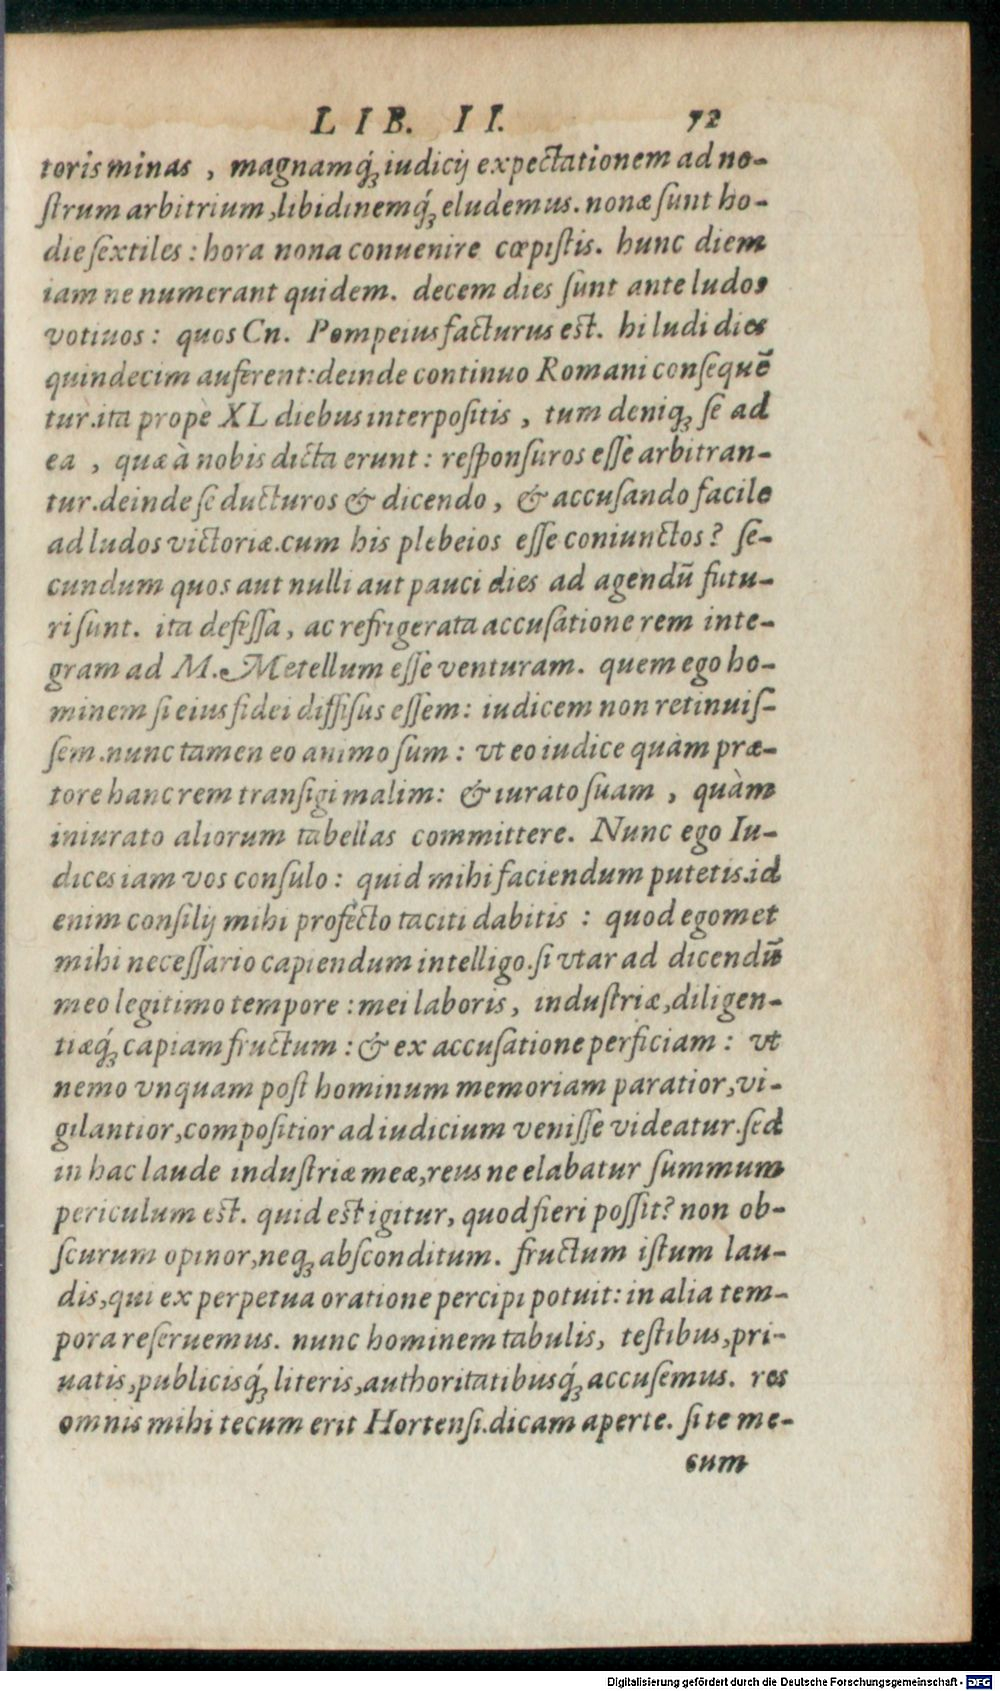 LIB. II. 72
toris minas, magnamq́; iudicij expectationem ad no-
ſtrum arbitrium, libidinemq́; eludemus. nonæ ſunt ho-
die ſextiles: hora nona conuenire cœpiſtis. hunc diem
iam ne numerant quidem. decem dies ſunt ante ludos
votiuos: quos Cn. Pompeius facturus eſt. hi ludi dies
quindecim auferent: deinde continuo Romani conſequē
tur. ita prope XL diebus interpoſitis, tum deniq; ſe ad
ea, quæ à nobis dicta erunt: reſponſuros eſſe arbitran-
tur. deinde ſe ducturos & dicendo, & accuſando facile
ad ludos victoriæ. cum his plebeios eſſe coniunctos? ſe-
cundum quos aut nulli aut pauci dies ad agendū futu-
ri ſunt. ita defeſſa, ac refrigerata accuſatione rem inte-
gram ad M. Metellum eſſe venturam. quem ego ho-
minem ſi eius fidei diffiſus eſſem: iudicem non retinuiſ-
ſem. nunc tamen eo animo ſum: vt eo iudice quàm præ-
tore hanc rem tranſigi malim: & iurato ſuam, quàm
iniurato aliorum tabellas committere. Nunc ego Iu-
dices iam vos conſulo: quid mihi faciendum putetis. id
enim conſilij mihi profecto taciti dabitis: quod egomet
mihi neceſſario capiendum intelligo. ſi vtar ad dicendū
meo legitimo tempore: mei laboris, induſtriæ, diligen-
tiæq́; capiam fructum: & ex accuſatione perficiam: vt
nemo vnquam poſt hominum memoriam paratior, vi-
gilantior, compoſitior ad iudicium veniſſe videatur. ſed
in hac laude induſtriæ meæ, reus ne elabatur ſummum
periculum eſt. quid eſt igitur, quod fieri poſſit? non ob-
ſcurum opinor, neq; abſconditum. fructum iſtum lau-
dis, qui ex perpetua oratione percipi potuit: in alia tem-
pora reſeruemus. nunc hominem tabulis, teſtibus, pri-
uatis, publicisq́; literis, authoritatibusq́; accuſemus. res
omnis mihi tecum erit Hortenſi. dicam aperte. ſi te me-
cum
Digitalisierung gefördert durch die Deutsche Forschungsgemeinschaft - DFG